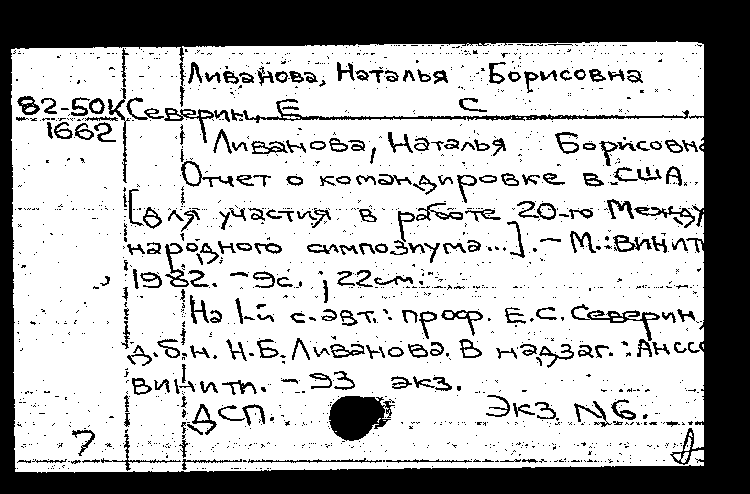 Ливанова, Наталья Борисовна
82-50К Северин, Е С
1662
Ливанова, Наталья Борисовна
Отчет о командировке в США
[для участия в работе 20-го Между
народного симпозиума...]. - М.: ВИНИТИ
1982. - 9с. ; 22см.
На 1-й с. авт.: проф. Е.С. Северин,
д.б.н. Н.Б. Ливанова. В надзаг.: АНссс
ВИНИТИ. - 93 экз.
ДСП. Экз N6.
7